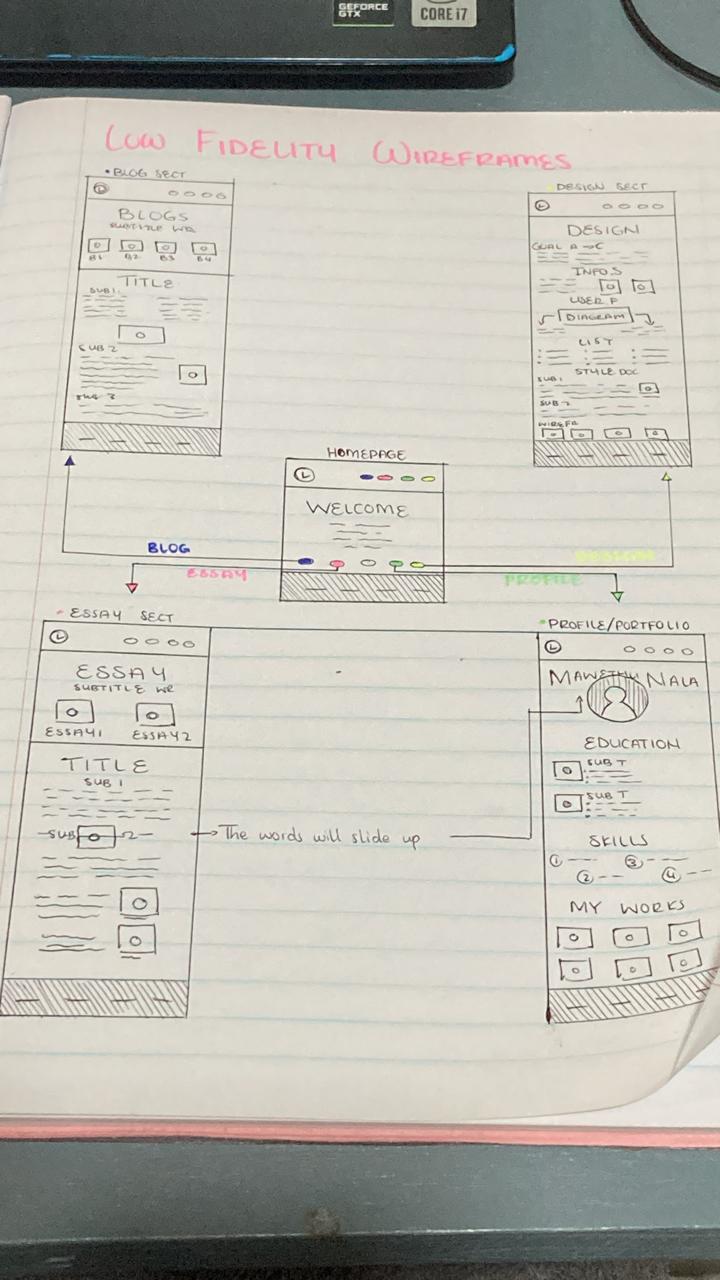 GEFORCE
GTX
CORE i7
LOW FIDELITY WIREFRAMES
• BLOG SECT
L
BLOGS
SUBTITLE WR
B1 B2 B3 B4
TITLE
SUB 1
SUB 2
SUB 3
DESIGN SECT
L
DESIGN
GOAL A → C
INFO S
USER F
DIAGRAM
LIST
STYLE DOC
SUB 1
SUB 2
WIREFR
HOMEPAGE
L
WELCOME
BLOG
ESSAY
PROFILE
• ESSAY SECT
L
ESSAY
SUBTITLE WR
ESSAY 1 ESSAY 2
TITLE
SUB 1
SUB 2
→ The words will slide up
• PROFILE/PORTFOLIO
L
NALA
EDUCATION
SUB T
SUB T
SKILLS
1 3
2 4
MY WORKS